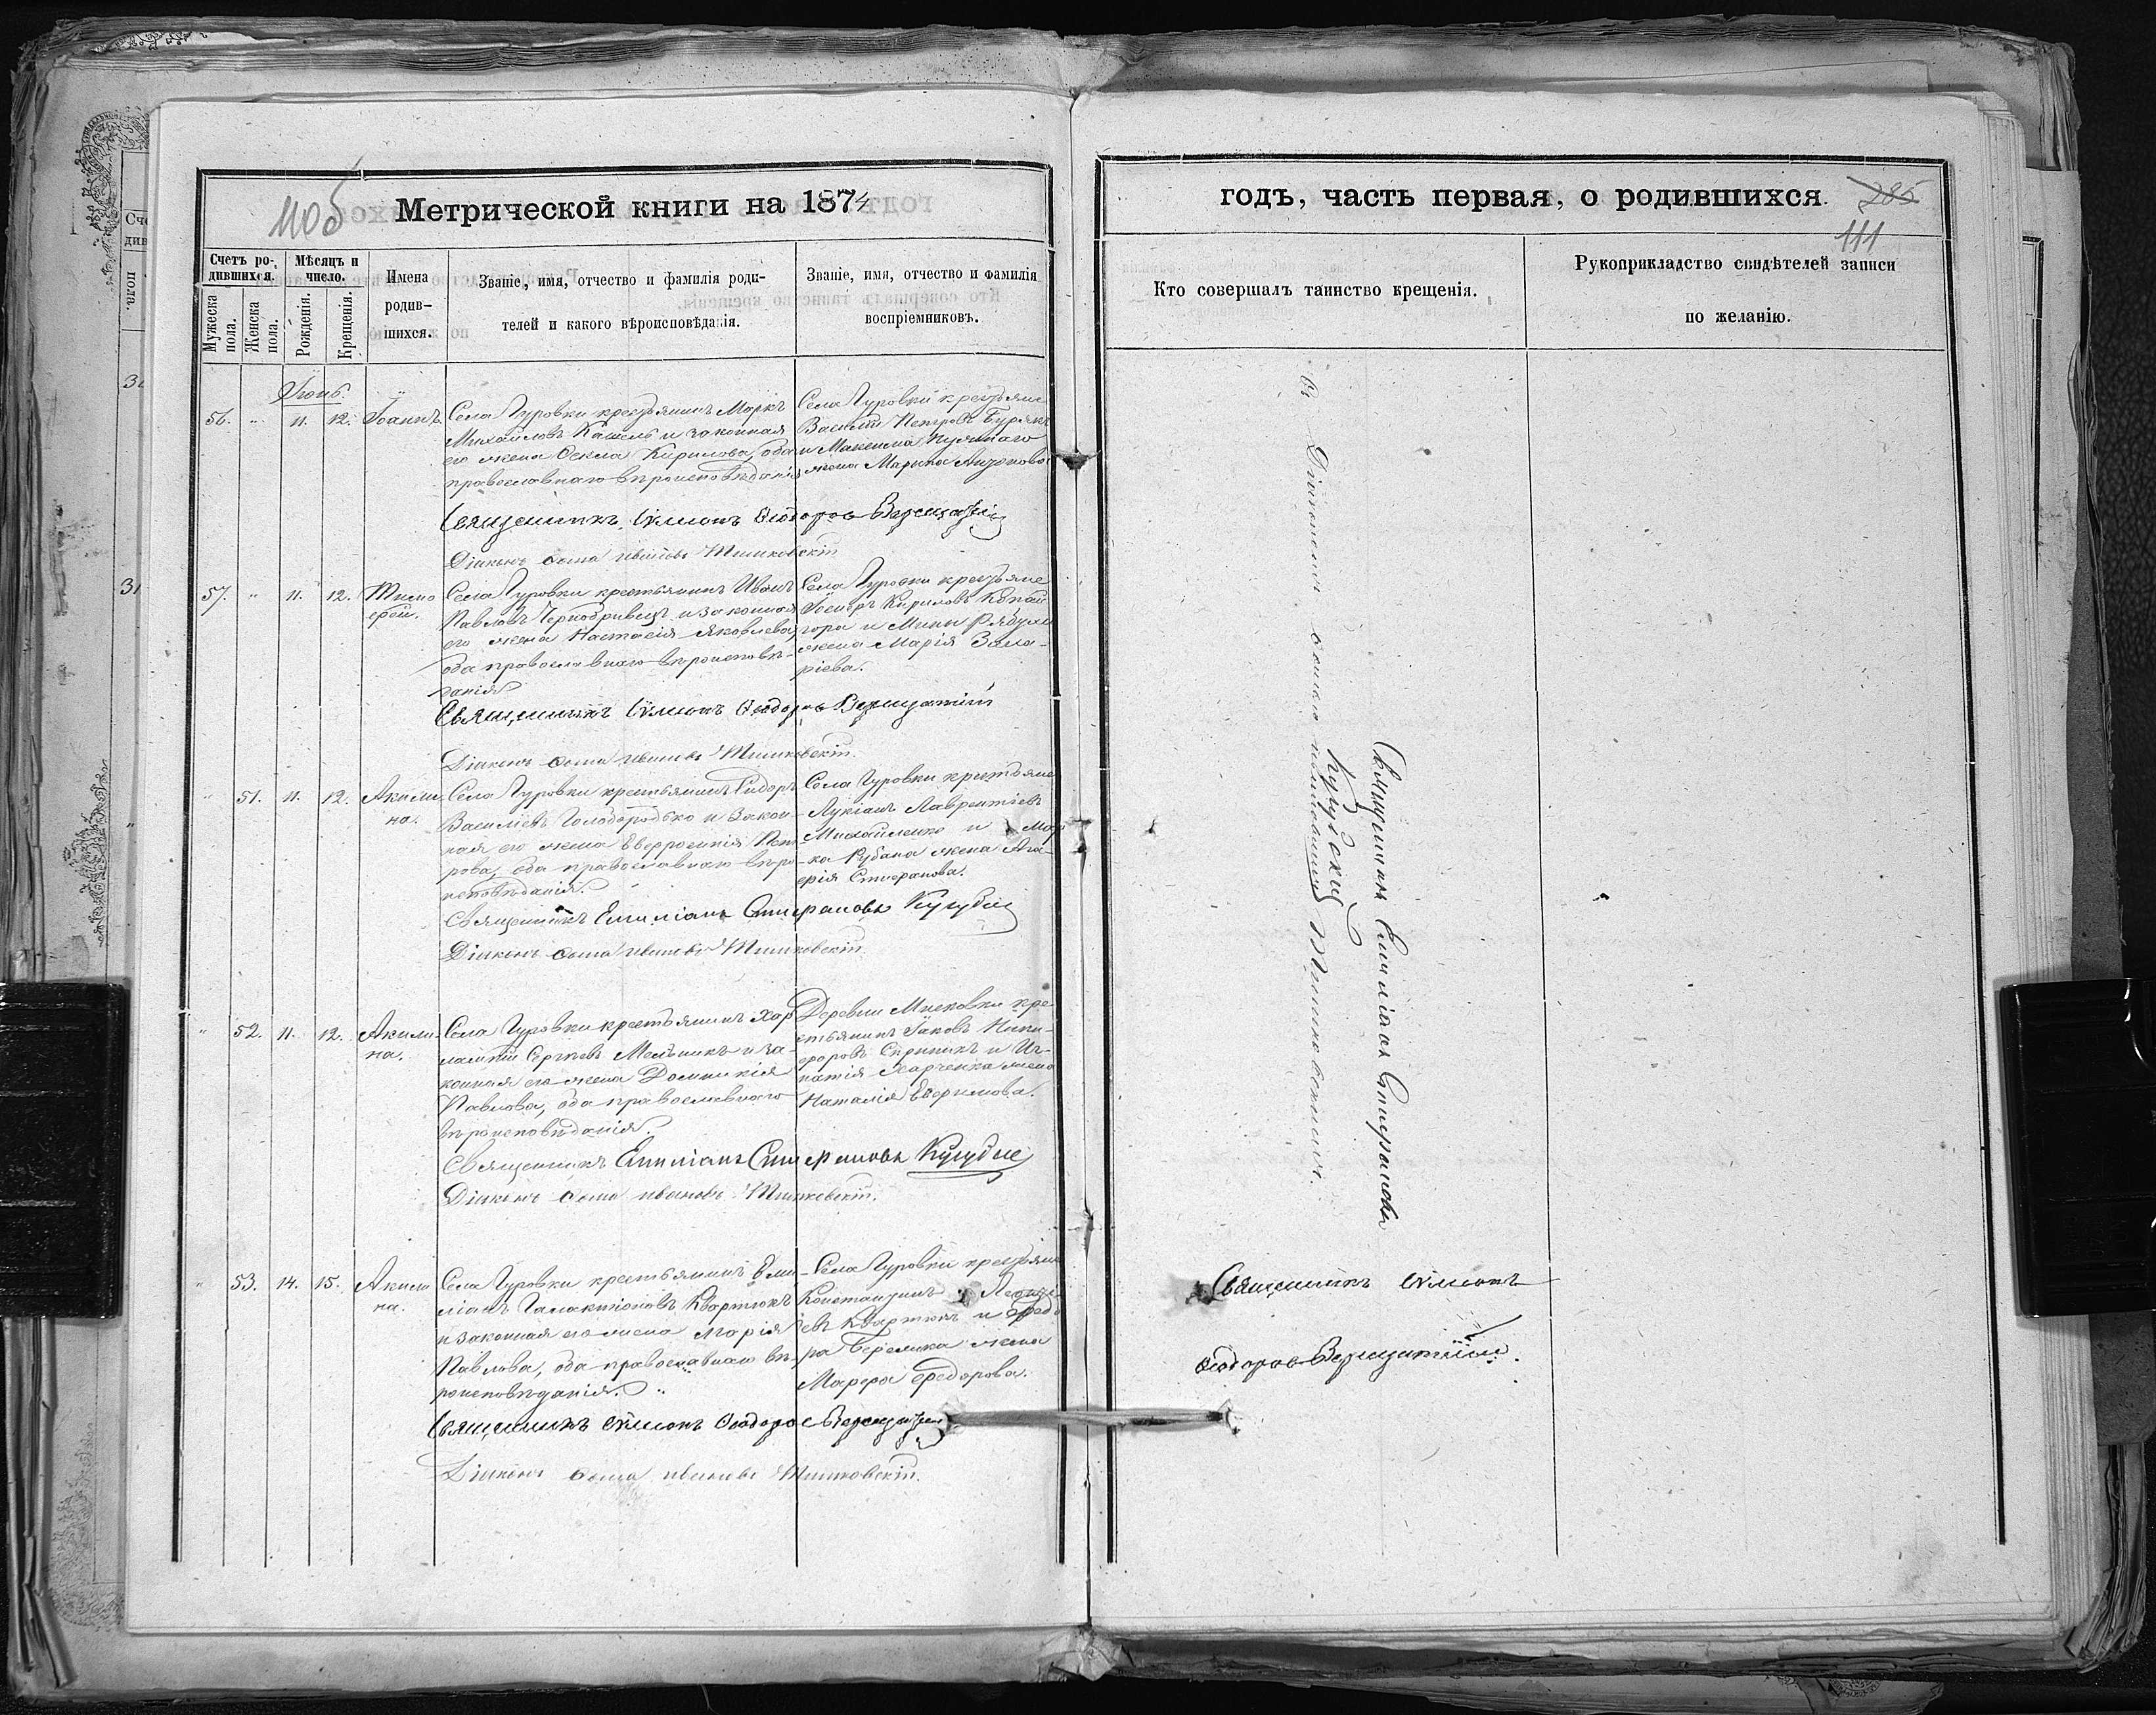 110б
Метрической книги на 1874
Счетъ ро-
дившихся.
Мѣсяцъ и
число.
Мужеска
пола.
Женска
пола.
Рожденія.
Крещенія.
Имена
родив-
шихся.
Званіе, имя, отчество и фамилія роди-
телей и какого вѣроисповѣданія.
Званіе, имя, отчество и фамилія
воспріемниковъ.
Іюнь.
56. " 11. 12. Іоаннъ.
Села Гуровки крестьянинъ Маркъ
Михайловъ Кашель и законная
его жена Ѳекла Кирилова, оба
православнаго вѣроисповѣданія
Села Гуровки крестьяне
Василій Петровъ Бурякъ
и Максима
жена Марина
Священникъ Сѵмеонъ Ѳеодоровъ
Діаконъ Ѳома Ивановъ Тишковскій
57. " 11. 12. Тимо
ѳей.
Села Гуровки крестьянинъ Иванъ
Павловъ Чернобривецъ и законная
его жена Настасія Яковлева,
оба православнаго вѣроисповѣ-
данія
Села Гуровки крестьяне
Кириловъ
гора и
жена Марія Заха-
ріева.
Священникъ Сѵмеонъ Ѳеодоровъ
Діаконъ Ѳома Ивановъ Тишковскій.
" 51. 11. 12. Акили
на.
Села Гуровки крестьянинъ Сидоръ
Василіевъ Голобородько и закон-
ная его жена Евфросинія Пет
рова, оба православнаго вѣро-
исповѣданія.
Села Гуровки крестьяне
Лукіанъ Лаврентіевъ
Михайленко и Мар
ка Кубана жена Ага-
фія Стефанова.
Священникъ Емиліанъ Стефановъ
Діаконъ Ѳома Ивановъ Тишковскій.
" 52. 11. 12. Акили-
на.
Села Гуровки крестьянинъ Хар
лампій Сергѣевъ Мельникъ и за-
конная его жена Домникія
Павлова, оба православнаго
вѣроисповѣданія.
Деревни кре
стьянинъ Іаковъ Ники-
форовъ и Иг-
натія Харченка жена
Наталія Евфимова.
Священникъ Емиліанъ Стефановъ
Діаконъ Ѳома Ивановъ Тишковскій.
" 53. 14. 15. Акили
на.
Села Гуровки крестьянинъ Еми-
ліанъ Галактіоновъ Квартюкъ
и законная его жена Марія
Павлова, оба православнаго вѣ-
роисповѣданія.
Села Гуровки крестьяне
Константинъ
евъ Квартюкъ и Ѳедо
ра жена
Марфа Ѳедорова.
Священникъ Сѵмеонъ Ѳеодоровъ
Діаконъ Ѳома Ивановъ Тишковскій.
годъ, часть первая, о родившихся.
285
111
Кто совершалъ таинство крещенія.
Рукоприкладство свидѣтелей записи
по желанію.
Священникъ Емиліанъ Стефановъ
съ Діакономъ Ѳомою Тишковскимъ.
Священникъ Сѵмеонъ
Ѳеодоровъ